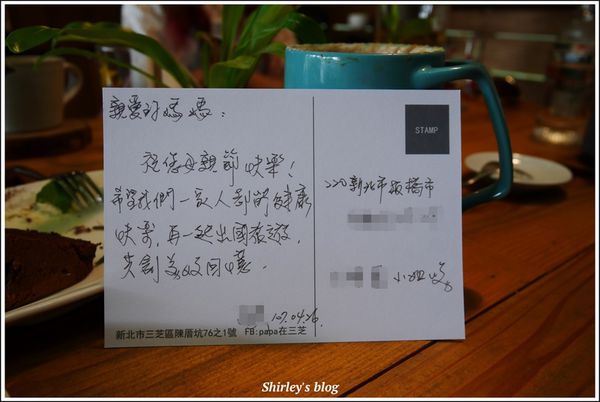 親愛的媽媽：
祝你母親節快樂！
希望我們一家人都能健康
快樂，再一起出國旅遊，
共創美好回憶。
107.04.26.
新北市三芝區陳厝坑76之1號 FB:papa在三芝
STAMP
220新北市板橋市
小姐
Shirley's blog